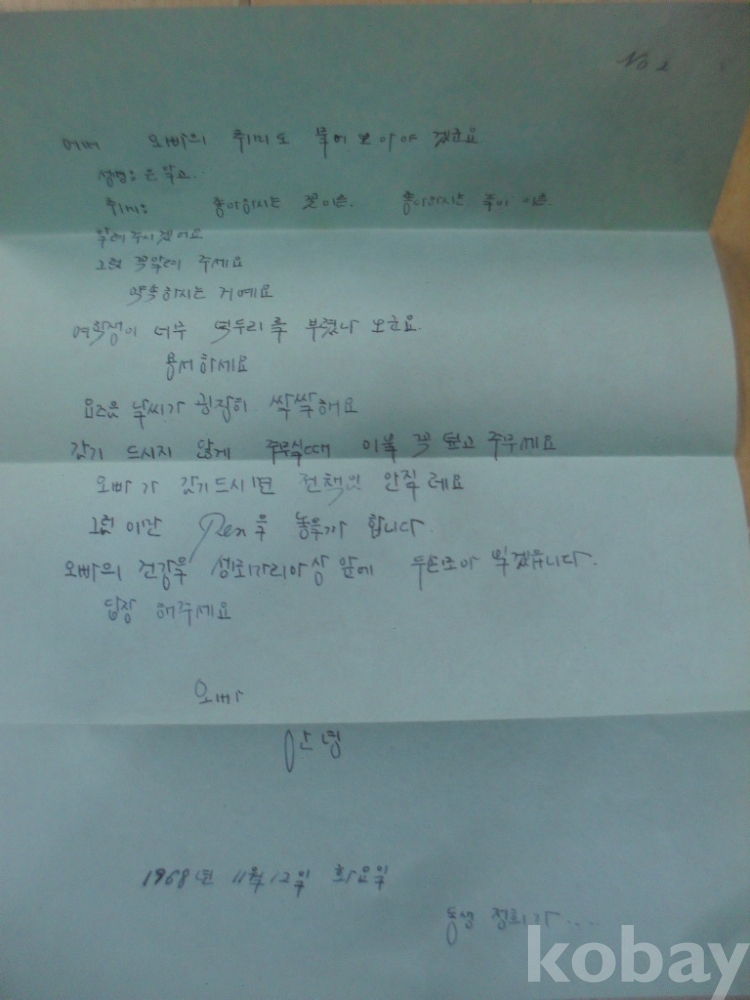 No 2
오빠의 취미도 물어 보아야 겠군요
성명: 은 알고..
취미: 좋아하시는 꽃이른. 좋아하시는 이른.
알려주시겠어요
그럼 꼭알려 주세요
약속하시는 거예요
여학생이 너무 넉두리를 부렸나 보군요.
용서하세요
요즈음 날씨가 굉장히 싹싹해요
감기 드시지 않게 주무실때 이불 꼭 덮고 주무세요
오빠가 감기드시면 안질 레요
그럼 이만 Pen을 놓을까 합니다.
오빠의 건강을 성모마리아상 앞에 두손모아 빌겠읍니다.
답장 해주세요
오빠
안녕
1968년 11월 12일 화요일
동생 정희가....
kobay